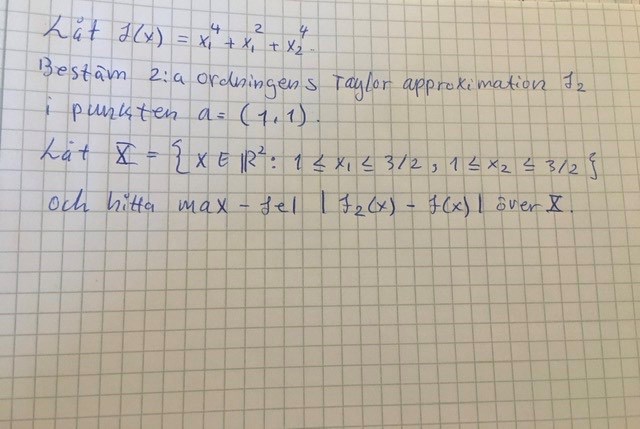 Låt f(x) = x₁⁴ + x₁² + x₂⁴.
Bestäm 2:a ordningens Taylor approximation f₂
i punkten a = (1,1).
Låt X = { x ∈ ℝ²: 1 ≤ x₁ ≤ 3/2, 1 ≤ x₂ ≤ 3/2 }
och hitta max-fel | f₂(x) - f(x) | över X.